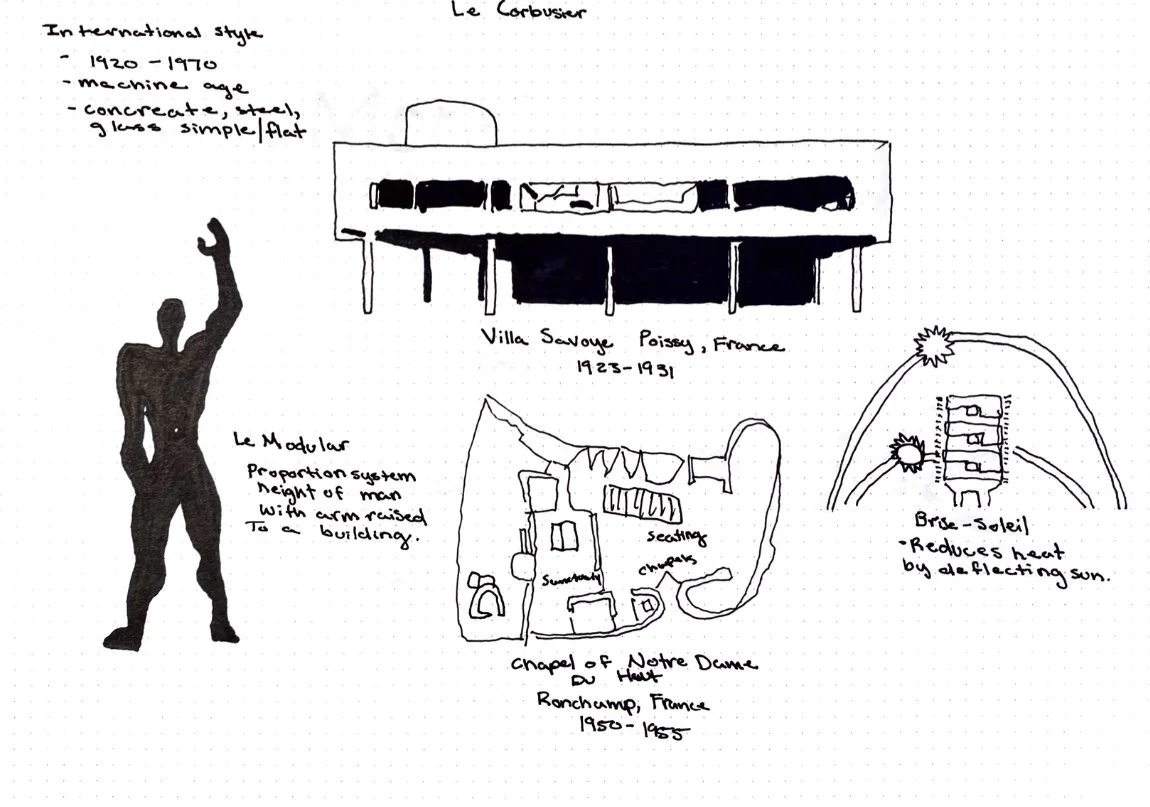 Le Corbusier
International style
- 1920 - 1970
- machine age
- concreate, steel,
glass simple/flat
Villa Savoye Poissy, France
1923-1931
Le Modular
Proportion system
height of man
with arm raised
To a building.
Brise-Soleil
- Reduces heat
by deflecting sun.
seating
chapels
Sanctuary
Chapel of Notre Dame
Du Haut
Ronchamp, France
1950-1955